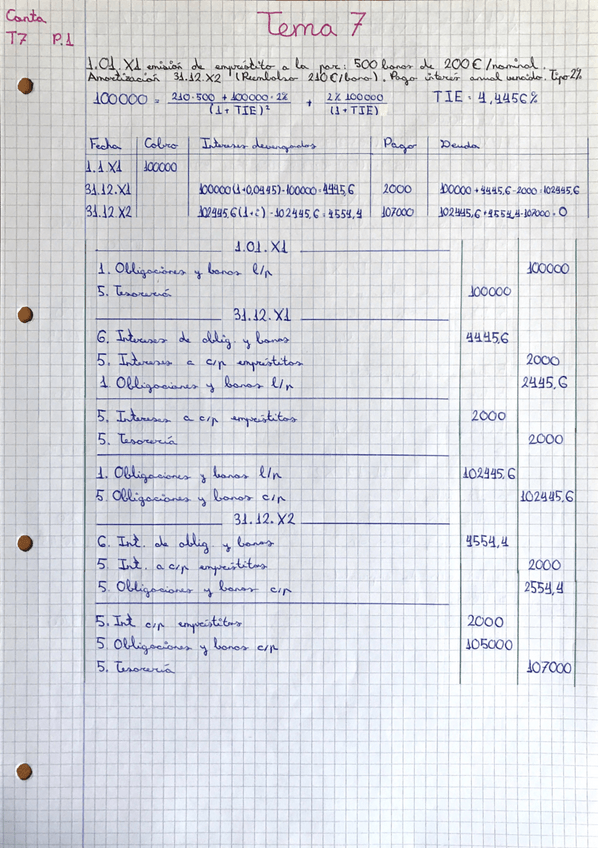 Conta
T7 P.1
Tema 7
1.01.X1 emisión de empréstito a la par: 500 bonos de 200€/nominal.
Amortización 31.12.X2 (Reembolso 210€/bono). Pago interés anual vencido. Tipo 2%
100000 = (210·500 + 100000·2%)/(1+TIE)² + (2% 100000)/(1+TIE) TIE = 4,4456%
Fecha Cobro Intereses devengados Pago Deuda
1.1.X1 100000
31.12.X1 100000(1+0,0445)-100000=4445,6 2000 100000+4445,6-2000=102445,6
31.12.X2 102445,6(1+i)-102445,6=4554,4 107000 102445,6+4554,4-107000=0
1.01.X1
1. Obligaciones y bonos l/p 100000
5. Tesorería 100000
31.12.X1
6. Intereses de oblig. y bonos 4445,6
5. Intereses a c/p empréstitos 2000
1 Obligaciones y bonos l/p 2445,6
5. Intereses a c/p empréstitos 2000
5. Tesorería 2000
1. Obligaciones y bonos l/p 102445,6
5. Obligaciones y bonos c/p 102445,6
31.12.X2
6. Int. de oblig. y bonos 4554,4
5. Int. a c/p empréstitos 2000
5. Obligaciones y bonos c/p 2554,4
5. Int c/p empréstitos 2000
5 Obligaciones y bonos c/p 105000
5. Tesorería 107000